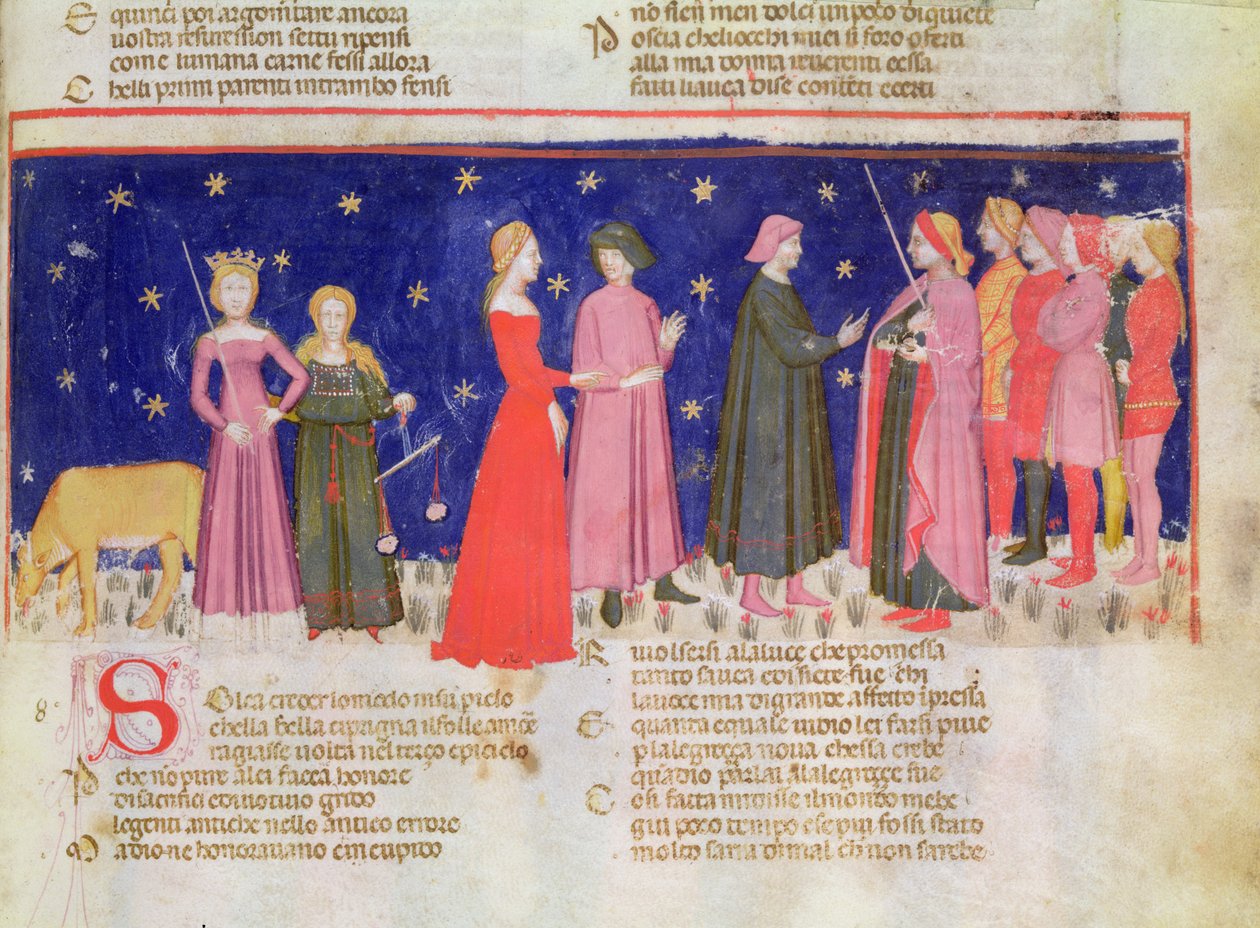 E quinci poi argomentare ancora
vostra resuression settu ripensi
come lumana carne fessi allora
C helli primi parenti intrambo fensi
no fien men dolci un poco di quiete
P oscia cheliocchi miei si foro oferti
alla mia donna reverenti eessa
fatti liavea dise contēti ecerti
8
S Olea creder lomōdo insu piclo
chella bella ciprigna ilfolle amore
raggiasse volta nel terço epiciclo
P che nō pure alei faceā honore
disacrifici edivotivo grido
legenti antiche nello antico errore
M adio ne honoravano ē cupido
R ivolsersi alaluce che promessa
tanto savea
lavoce mia digrande affetto īpressa
E quanta equale vidio lei farsi piue
p lalegreçça nova chesacrebe
quādio parlai alalegreçe sue
C osi fatta midisse ilmondo mebe
giu poco tempo esepiu fossi stato
molto saria dimal ch non sarebe